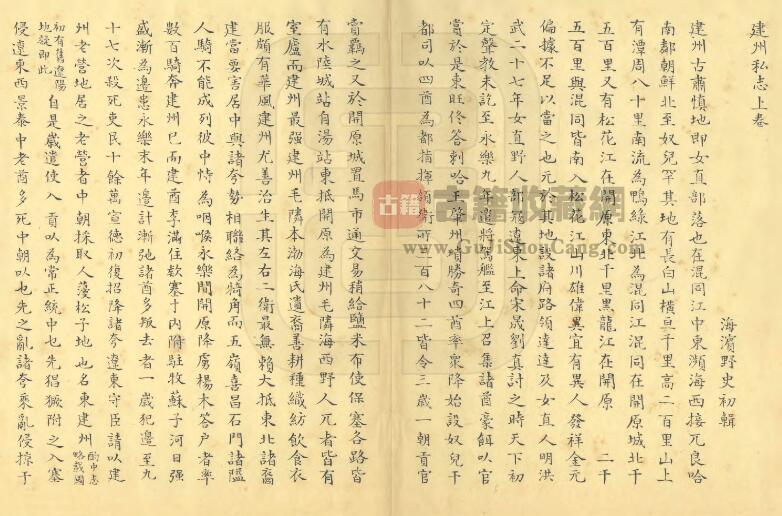 建州私志上卷
海濱野史初輯
建州古肅慎地即女直部落也在混同江中東瀕海西接兀良哈
南鄰朝鮮北至奴兒罕其地有長白山橫亘千里高二百里山上
有潭周八十里南流為鴨綠江北為混同江混同在開原城北千
五百里又有松花江在開原東北千里黑龍江在開原 二千
五百里與混同皆南入松花江山川雄偉異宜有異人發祥金元
偏據不足以當之也元於其地設諸府路領達達及女直人明洪
武二十七年女直野人 寇遼東上命宋晟劉真討之時天下初
定聲教未訖至永樂九年遣將 艦至江上召集諸酋豪餌以官
賞於是東旺佟答剌哈王肇州瑣勝奇四酋率衆降始設奴兒干
都司以四酋為都指揮領衛所二百八十二皆令三歲一朝貢官
賞羈之又於開原城置馬市通交易稍給鹽米布使保塞各路皆
有水陸城站自湯站東抵開原為建州毛隣海西野人兀者皆有
室廬而建州最强建州毛隣本渤海氏遺裔善耕種織紡飲食衣
服頗有華風建州尤善治生其左右二衛最無賴大抵東北諸裔
建當要害居中與諸夸勢相聯絡為犄角而五嶺喜昌石門諸隘
人騎不能成列彼中恃為咽喉永樂間開原降虜楊木答户者率
數百騎奔建州已而建酋李滿住款塞于内附駐牧蘇子河日强
盛漸為邊患永樂末年邊計漸弛諸酋多叛去者一歲犯邊至九
十七次殺死吏民十餘萬宣德初復招降諸夸遼東守臣請以建
州老營地居之老營者中朝採取人蓡松子地也名東建州酌中志略載國
初有舊遼陽地發即此自是歲遣使入貢以為常正統中也先猖獗附之入塞
侵遼東西景泰中老酋多死中朝以也先之亂諸夸乘亂侵掠于
古籍
古籍收藏網
www.GuJiShouCang.com